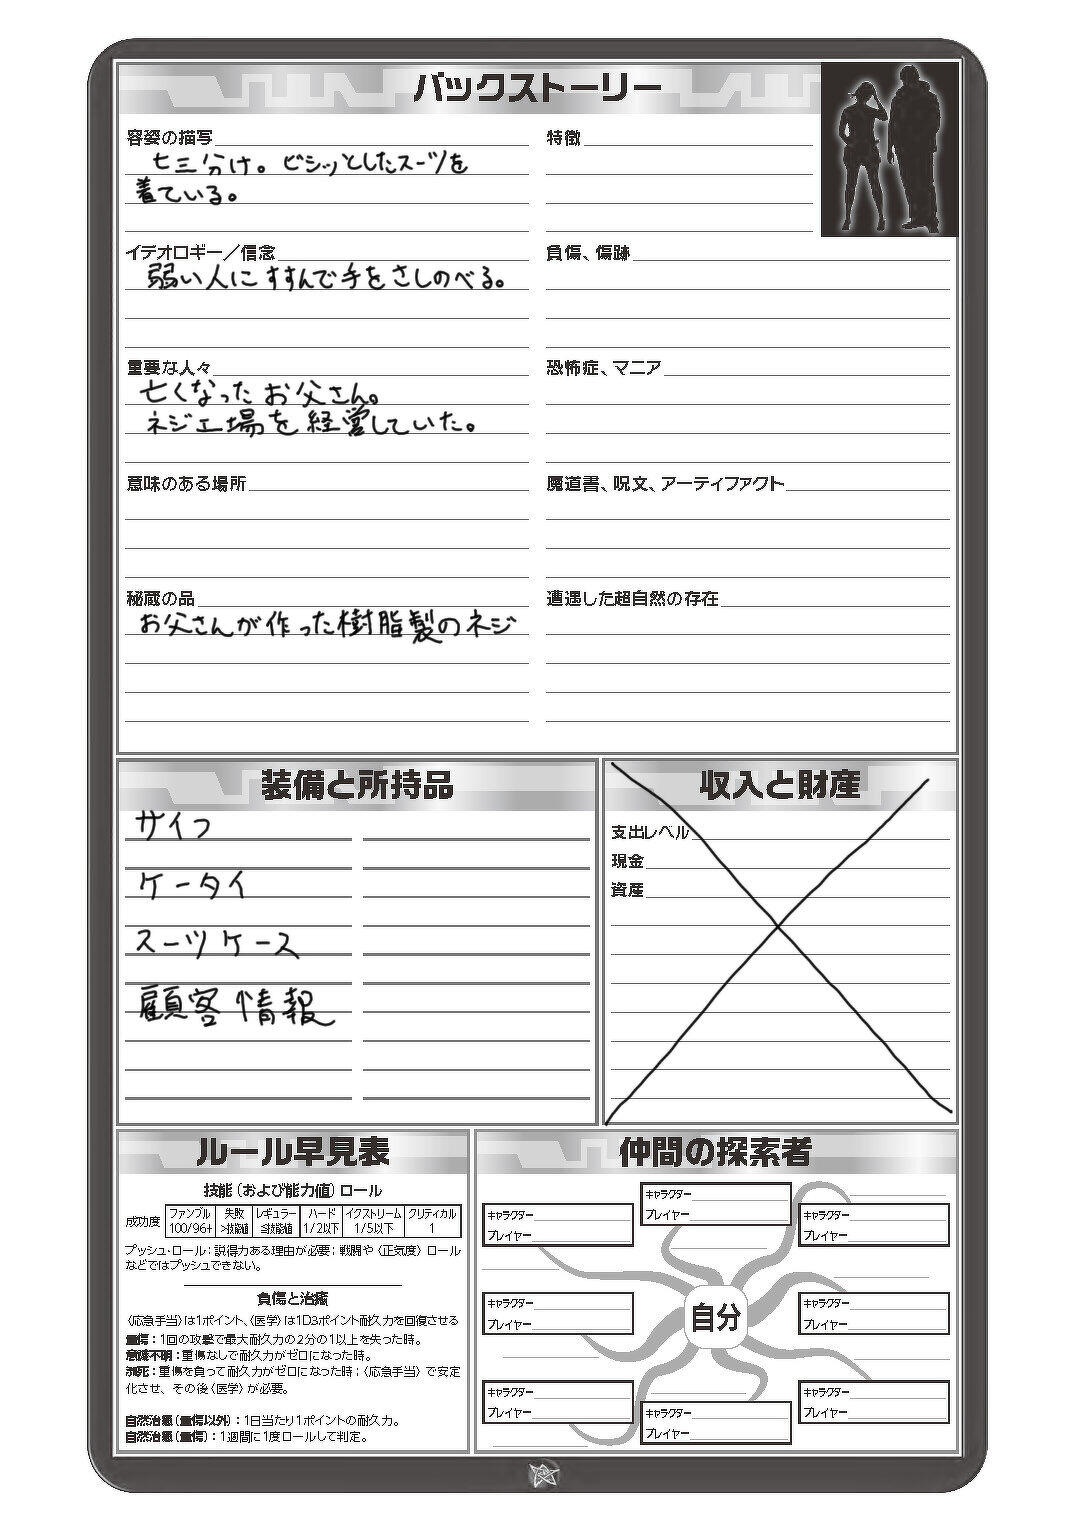 バックストーリー
容姿の描写
七三分け。ビシッとしたスーツを
着ている。
イデオロギー／信念
弱い人にすすんで手をさしのべる。
重要な人々
亡くなったお父さん。
ネジ工場を経営していた。
意味のある場所
秘蔵の品
お父さんが作った樹脂製のネジ
特徴
負傷、傷跡
恐怖症、マニア
魔道書、呪文、アーティファクト
遭遇した超自然の存在
装備と所持品
サイフ
ケータイ
スーツケース
顧客情報
収入と財産
支出レベル
現金
資産
ルール早見表
技能（および能力値）ロール
成功度
ファンブル 失敗 レギュラー ハード イクストリーム クリティカル
100/96+ >技能値 ≦技能値 1/2以下 1/5以下 1
プッシュ・ロール：説得力ある理由が必要；戦闘や〈正気度〉ロール
などではプッシュできない。
負傷と治癒
〈応急手当〉は1ポイント、〈医学〉は1D3ポイント耐久力を回復させる
重傷：1回の攻撃で最大耐久力の2分の1以上を失った時。
意識不明：重傷なしで耐久力がゼロになった時。
瀕死：重傷を負って耐久力がゼロになった時；〈応急手当〉で安定
化させ、その後〈医学〉が必要。
自然治癒（重傷以外）：1日当たり1ポイントの耐久力。
自然治癒（重傷）：1週間に1度ロールして判定。
仲間の探索者
キャラクター
プレイヤー
キャラクター
プレイヤー
キャラクター
プレイヤー
キャラクター
プレイヤー
自分
キャラクター
プレイヤー
キャラクター
プレイヤー
キャラクター
プレイヤー
キャラクター
プレイヤー